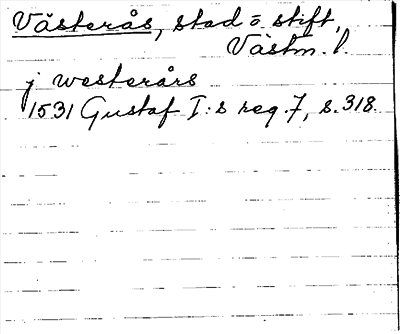 Västerås, stad o. stift,
Västm. l.
j westerårs
1531 Gustaf I:s reg. 7, s. 318.